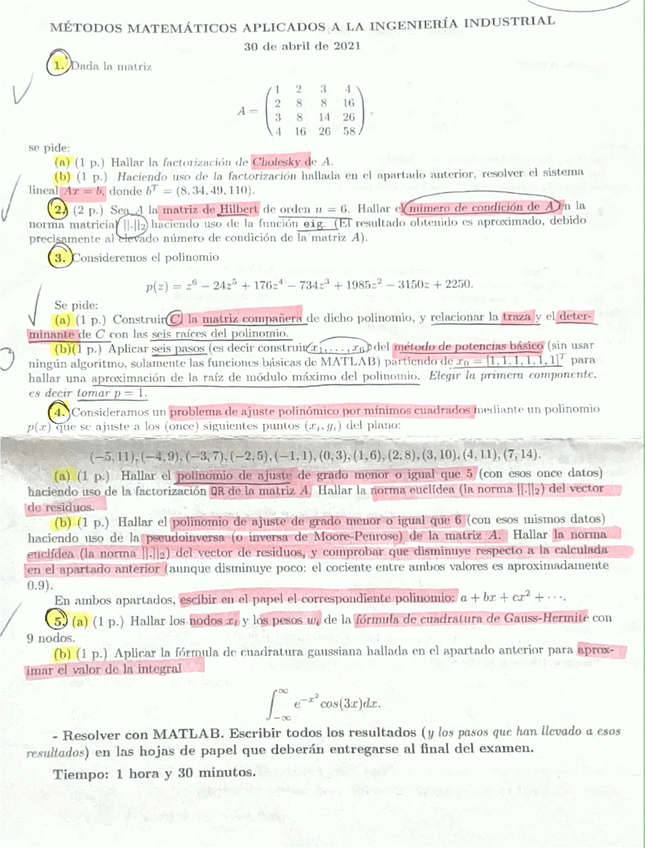 MÉTODOS MATEMÁTICOS APLICADOS A LA INGENIERÍA INDUSTRIAL
30 de abril de 2021
1. Dada la matriz
A = ( 1 2 3 4
2 8 8 16
3 8 14 26
4 16 26 58 ),
se pide:
(a) (1 p.) Hallar la factorización de Cholesky de A.
(b) (1 p.) Haciendo uso de la factorización hallada en el apartado anterior, resolver el sistema
lineal Ax = b, donde b^T = (8, 34, 49, 110).
2. (2 p.) Sea A la matriz de Hilbert de orden n = 6. Hallar el número de condición de A en la
norma matricial ||.||₂ haciendo uso de la función eig. (El resultado obtenido es aproximado, debido
precisamente al elevado número de condición de la matriz A).
3. Consideremos el polinomio
p(z) = z⁶ − 24z⁵ + 176z⁴ − 734z³ + 1985z² − 3150z + 2250.
Se pide:
(a) (1 p.) Construir C, la matriz compañera de dicho polinomio, y relacionar la traza y el deter-
minante de C con las seis raíces del polinomio.
(b)(1 p.) Aplicar seis pasos (es decir construir x₁, . . . , x₆) del método de potencias básico (sin usar
ningún algoritmo, solamente las funciones básicas de MATLAB) partiendo de x₀ = [1, 1, 1, 1, 1, 1]^T para
hallar una aproximación de la raíz de módulo máximo del polinomio. Elegir la primera componente,
es decir tomar p = 1.
4. Consideramos un problema de ajuste polinómico por mínimos cuadrados mediante un polinomio
p(x) que se ajuste a los (once) siguientes puntos (xᵢ, yᵢ) del plano:
(−5, 11), (−4, 9), (−3, 7), (−2, 5), (−1, 1), (0, 3), (1, 6), (2, 8), (3, 10), (4, 11), (7, 14).
(a) (1 p.) Hallar el polinomio de ajuste de grado menor o igual que 5 (con esos once datos)
haciendo uso de la factorización QR de la matriz A. Hallar la norma euclídea (la norma ||.||₂) del vector
de residuos.
(b) (1 p.) Hallar el polinomio de ajuste de grado menor o igual que 6 (con esos mismos datos)
haciendo uso de la pseudoinversa (o inversa de Moore-Penrose) de la matriz A. Hallar la norma
euclídea (la norma ||.||₂) del vector de residuos, y comprobar que disminuye respecto a la calculada
en el apartado anterior (aunque disminuye poco: el cociente entre ambos valores es aproximadamente
0.9).
En ambos apartados, escibir en el papel el correspondiente polinomio: a + bx + cx² + · · ·.
5. (a) (1 p.) Hallar los nodos xᵢ y los pesos wᵢ de la fórmula de cuadratura de Gauss-Hermite con
9 nodos.
(b) (1 p.) Aplicar la fórmula de cuadratura gaussiana hallada en el apartado anterior para aprox-
imar el valor de la integral
∫_{−∞}^{∞} e^{−x²} cos(3x)dx.
- Resolver con MATLAB. Escribir todos los resultados (y los pasos que han llevado a esos
resultados) en las hojas de papel que deberán entregarse al final del examen.
Tiempo: 1 hora y 30 minutos.